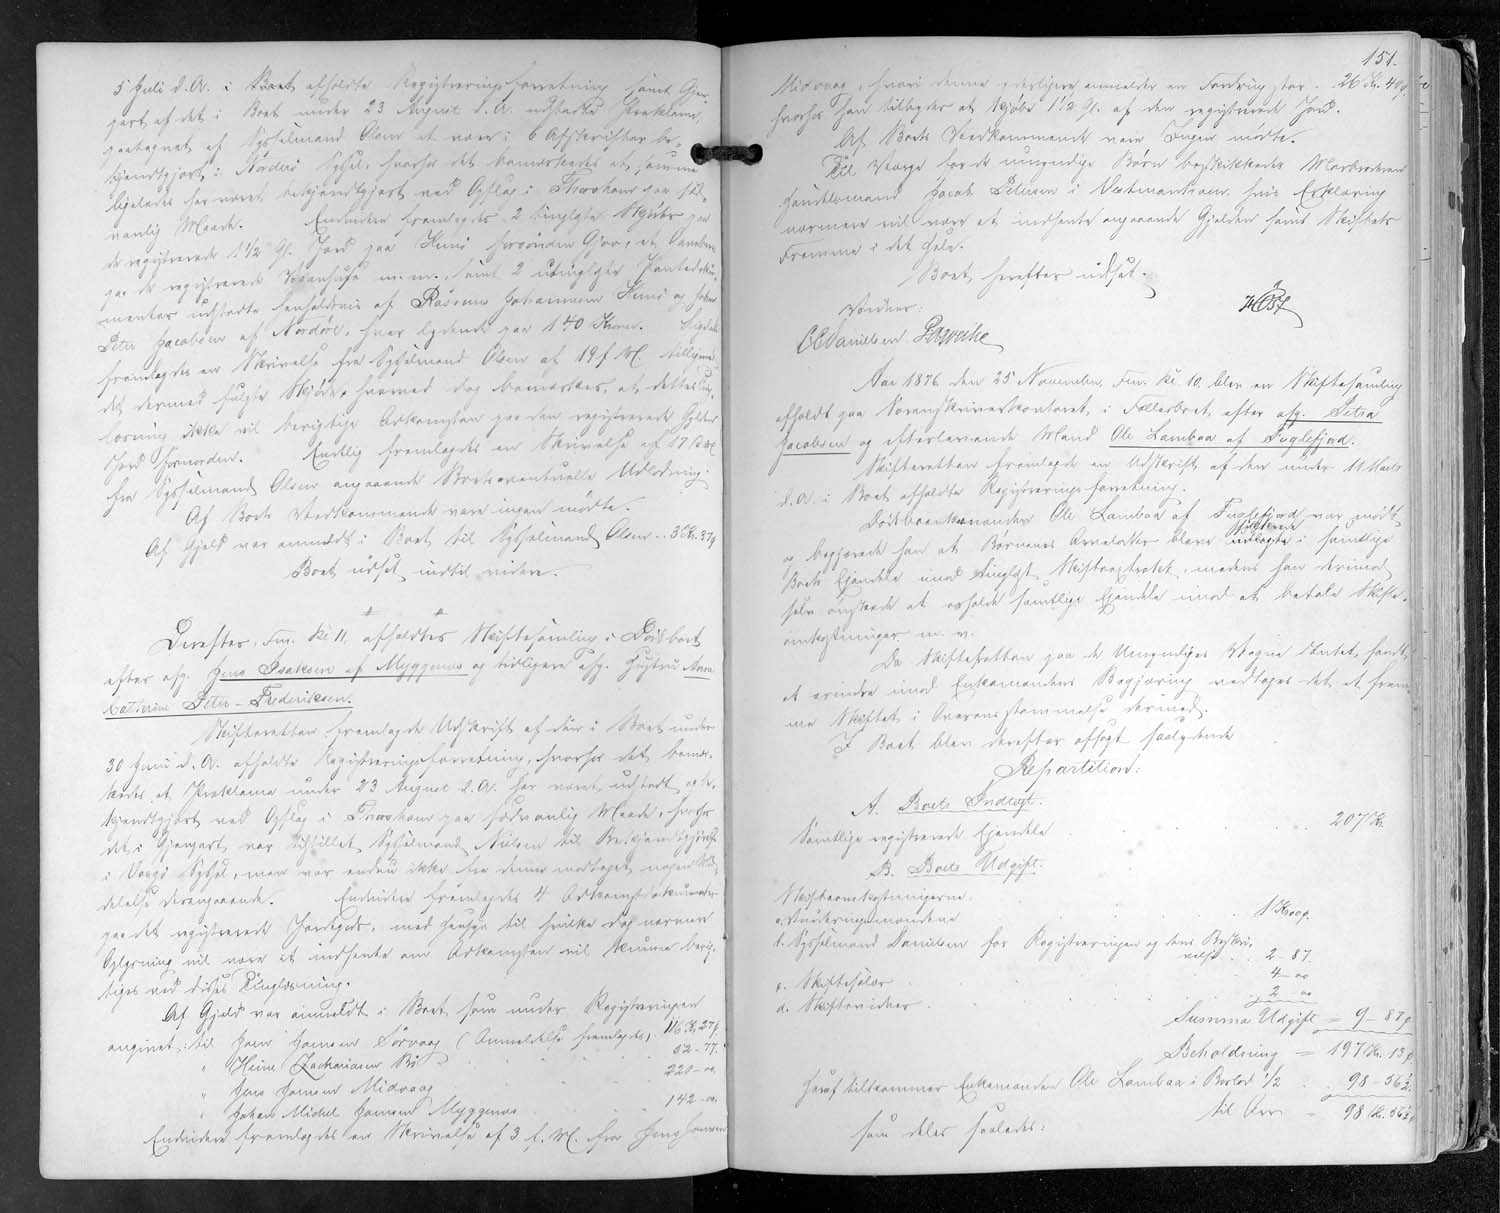 5 Juli d. A. i Boet afholdte Registreringsforretning samt Gjen-
part af det i Boet under 23 August d. A. udstedte Proklama,
paategnet af Sysselmand Olsen at være i 6 Afskrifter be-
kjendtgjort i Norderø Syssel, hvorhos det bemærkedes at samme
ligeledes har været bekjendtgjort ved Opslag i Thorshavn paa sæd-
vanlig Maade. Endvidere fremlagdes 2 tinglyste Skjøder paa
de registrerede 1 1/2 Gl. Jord paa
paa de registrerede m.m., samt 2 utinglyste Pantedoku-
menter udstedte henholdsvis af Rasmus Johannesen og Johan
Peter Jacobsen af Nordøre, hver lydende paa 140 Kroner.
fremlagdes en Skrivelse fra Sysselmand Olsen af 19 f. M. tilligemed
det dermed fulgte Skjøde, hvorved dog bemærkes, at dettes Ting-
læsning ikke vil berigtige Adkomsten paa den registrerede
Jord. Endelig fremlagdes en Skrivelse af 17 f. M.
fra Sysselmand Olsen angaaende Boets eventuelle Udlodning.
Af Boets Vedkommende vare ingen mødte.
Af Gjeld var anmeldt i Boet til Sysselmand Olsen .. 3 Kr. 37
Boet udsat indtil videre.
Derefter, Fm. Kl 11, afholdtes Skiftesamling i Dødsboet
efter afg. Jens Isaksen af Myggenæs og tidligere afg. Hustru Anna
Cathrine Peter-Frederiksen.
Skifteretten fremlagde Udskrift af den i Boet under
30 Juni d. A. afholdte Registreringsforretning, hvorhos det bemær-
kedes, at Proklama under 23 August d. A. har været udstedt og be-
kjendtgjort ved Opslag i Thorshavn paa sædvanlig Maade, hvorhos
det, i Gjenpart, var tilstillet Sysselmand Nielsen til Bekjendtgjørelse
i Vaagø Syssel, men var endnu ikke fra denne modtaget nogen Med-
delelse desangaaende. Endvidere fremlagdes 4 Adkomstdokumenter
paa det registrerede Jordegods, med Hensyn til hvilke dog nærmere
Oplysning vil være at indhente om Adkomsten vil kunne berig-
tiges ved disses Tinglæsning.
Af Gjeld var anmeldt i Boet som under Registreringen
angivet: til Hans Hansen Sørvaag (Anmeldelse fremlagdes) 116 Kr. 27
" Heine Zachariasen Bø 52-77.
" Jens Hansen Midvaag 220-00.
" Johan Michel Hansen Myggenæs 142-00.
Endvidere fremlagdes en Skrivelse af 3 f. M. fra Jens Hansen
151.
Midvaag, hvori denne yderligere anmelder en Fordring, stor 26 Kr. 40,
hvorhos han tilbyder at kjøbe 1 1/2 Gl. af den registrerede Jord.
Af Boets Vedkommende vare Ingen mødte.
Til Værge for de umyndige Børn beskikkedes Morbroderen
Handelsmand Jacob Petersen i Vestmanhavn, hvis Erklæring
nærmere vil være at indhente angaaende Gjelden samt Skiftets
Fremme i det Hele.
Boet herefter udsat.
Vidner:
C C Danielsen
Aar 1876 den 25 November, Fm. Kl. 10, blev en Skiftesamling
afholdt paa Sorenskriverkontoret, i Fællesboet efter afg. Petra
Jacobsen og efterlevende Mand Ole Lambaa af Fuglefjord.
Skifteretten fremlagde en Udskrift af den under 11 Marts
d. A. i Boet afholdte Registreringsforretning.
Dødsboenkemanden Ole Lambaa af Fuglefjord var mødt
og begjærede han at Børnenes Arvelodder bleve udlagte i samtlige
Boets Ejendele imod tinglyst Skifteextrakt, medens han derimod
selv ønskede at beholde samtlige Ejendele imod at betale Skifte-
omkostninger m. v.
Da Skifteretten paa de Umyndiges Vegne Intet fandt
at erindre imod Enkemandens Begjæring vedtoges det at frem-
me Skiftet i Overensstemmelse dermed.
I Boet blev derefter affagt saalydende
Repartition:
A. Boets Indtægt.
Samtlige registrerede Ejendele 207 Kr.
B. Boets Udgift.
Skifteomkostningerne.
a. Vurderingsmændene 1 Kr 00
b. Sysselmand Danielsen for Registreringen og dens Beskri-
velse 2-87.
c. Skiftesalær 4-00
d. Skiftevidner 2-00
Summa Udgift = 9-87
Beholdning = 197 Kr. 13
Heraf tilkommer Enkemanden Ole Lambaa i Boslod 1/2 98-56 1/2
til Arv = 98 Kr. 56 1/2
som deles saaledes: